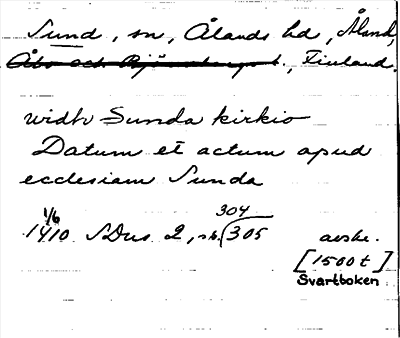 Sund, sn, Ålands hd, Åland,
Åbo och Björneborgs l., Finland.
widh Sunda kirkio
Datum et actum apud
ecclesiam Sunda
1/6 304
1410 SDns 2, s. 305 avskr.
[1500 t]
Svartboken